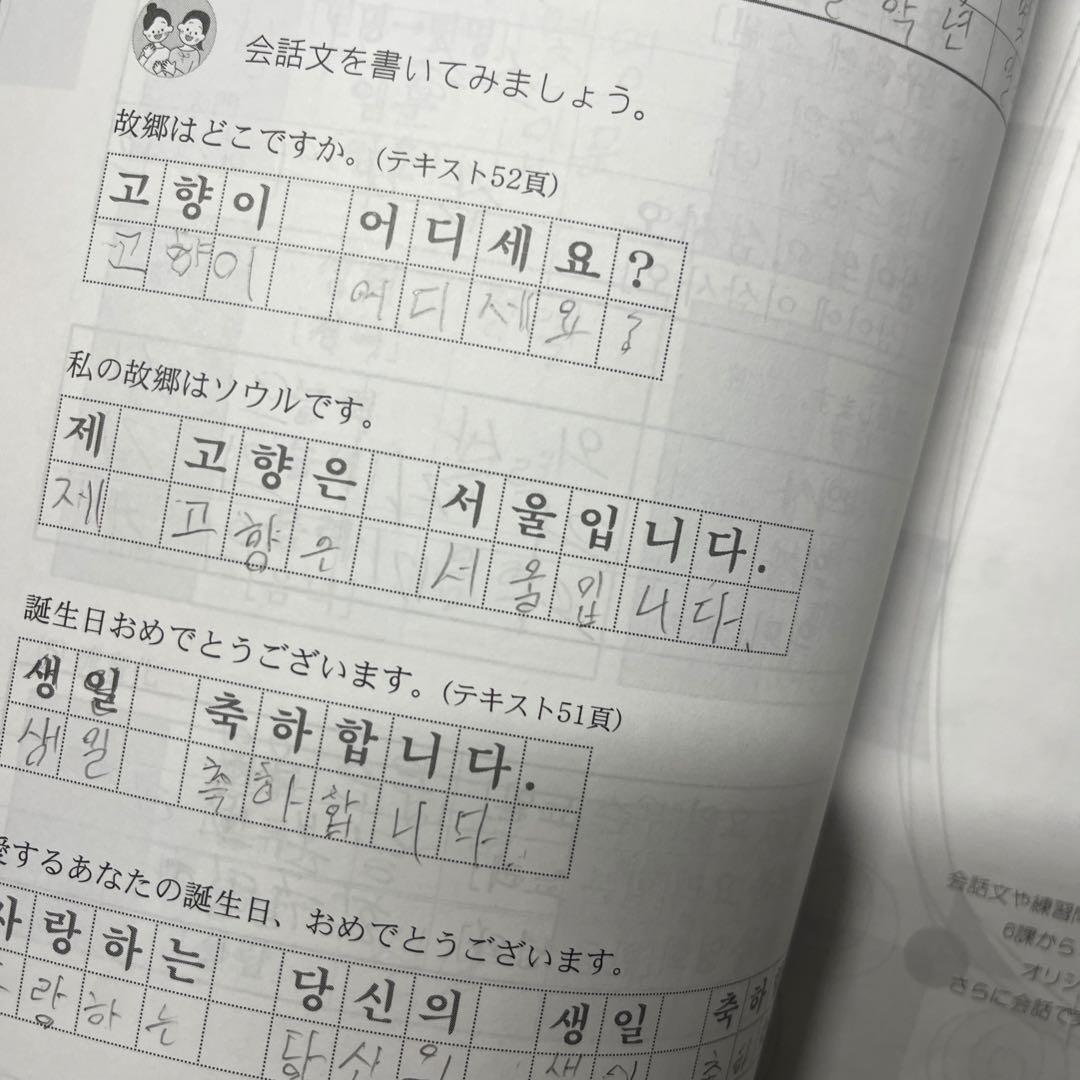 학년
会話文を書いてみましょう。
故郷はどこですか。(テキスト52頁)
고향이 어디세요?
고향이 어디제요?
私の故郷はソウルです。
제 고향은 서울입니다.
제 고향은 서울입니다.
誕生日おめでとうございます。(テキスト51頁)
생일 축하합니다.
생일 축하합니다
するあなたの誕生日、おめでとうございます。
사랑하는 당신의 생일 축하
랑하는 당신의 생
会話文や練習
6課から
オリジ
さらに会話で